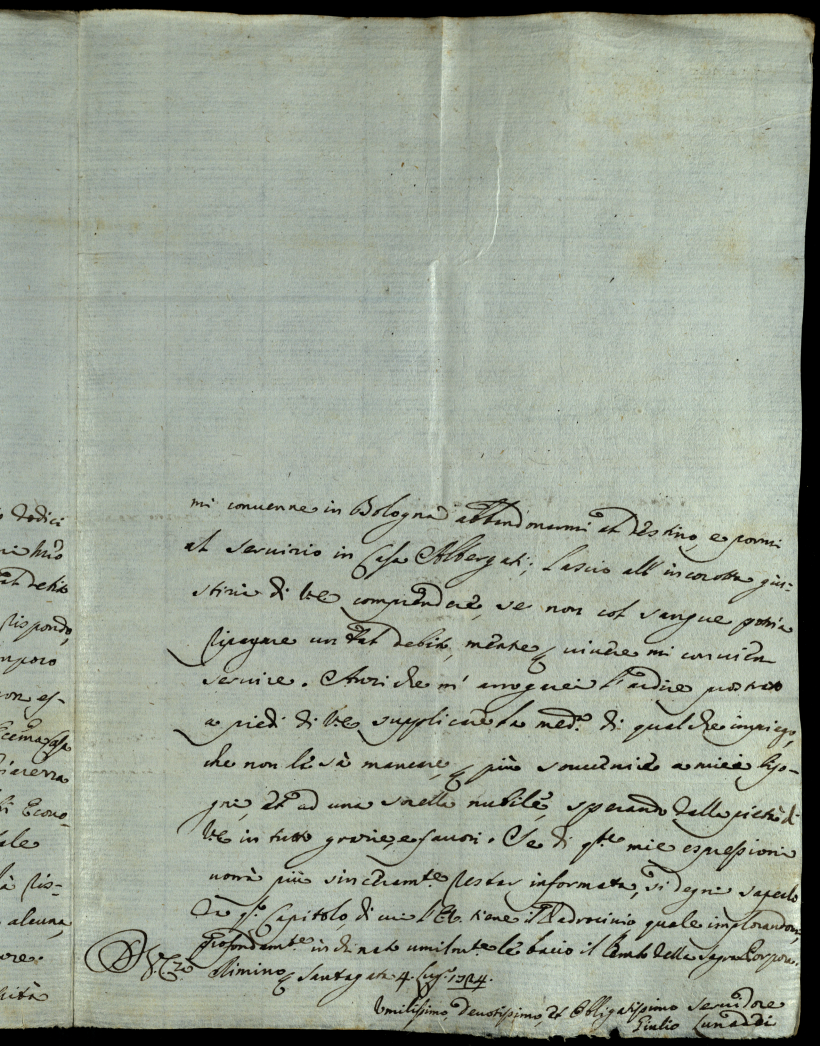 dodici
mio
tal debito
rispondo,
con es-
Econo-
tale
ris-
alcuna,
mi convenne in Bologna abbandonarmi al destino, e pormi
al servizio in Casa Albergati; Lascio all' incorotta giu-
stizia di V.E. comprendere, se non col sangue potria
ripagare un tal debito, mentre vivere mi convien
servire. Anzi che m' arroguei l'ardire prostrato
a piedi di V.E. supplicare la med.ª di qualche impiego,
che non li sà mancare, più sovvenire a miei biso-
gni, et ad una sorella nubile, sperando dalla pietà di
V.E. in tutto grazie, e favori. Se di q.ste mie espressioni
vorrà più sinceram.te restar informata, si degni saperlo
da q.o Capitolo, di cui l'E.V. tiene il Padrocinio quale implorandomi,
profondam.te inchinato umilm.te le bacio il Lembo della Sagra Porpora.
Di V. E.za Rimino Santagata 4. Lug.o 1724.
Umilissimo, Devotissimo, et Obligatissimo Servidore
Giulio Lunardi